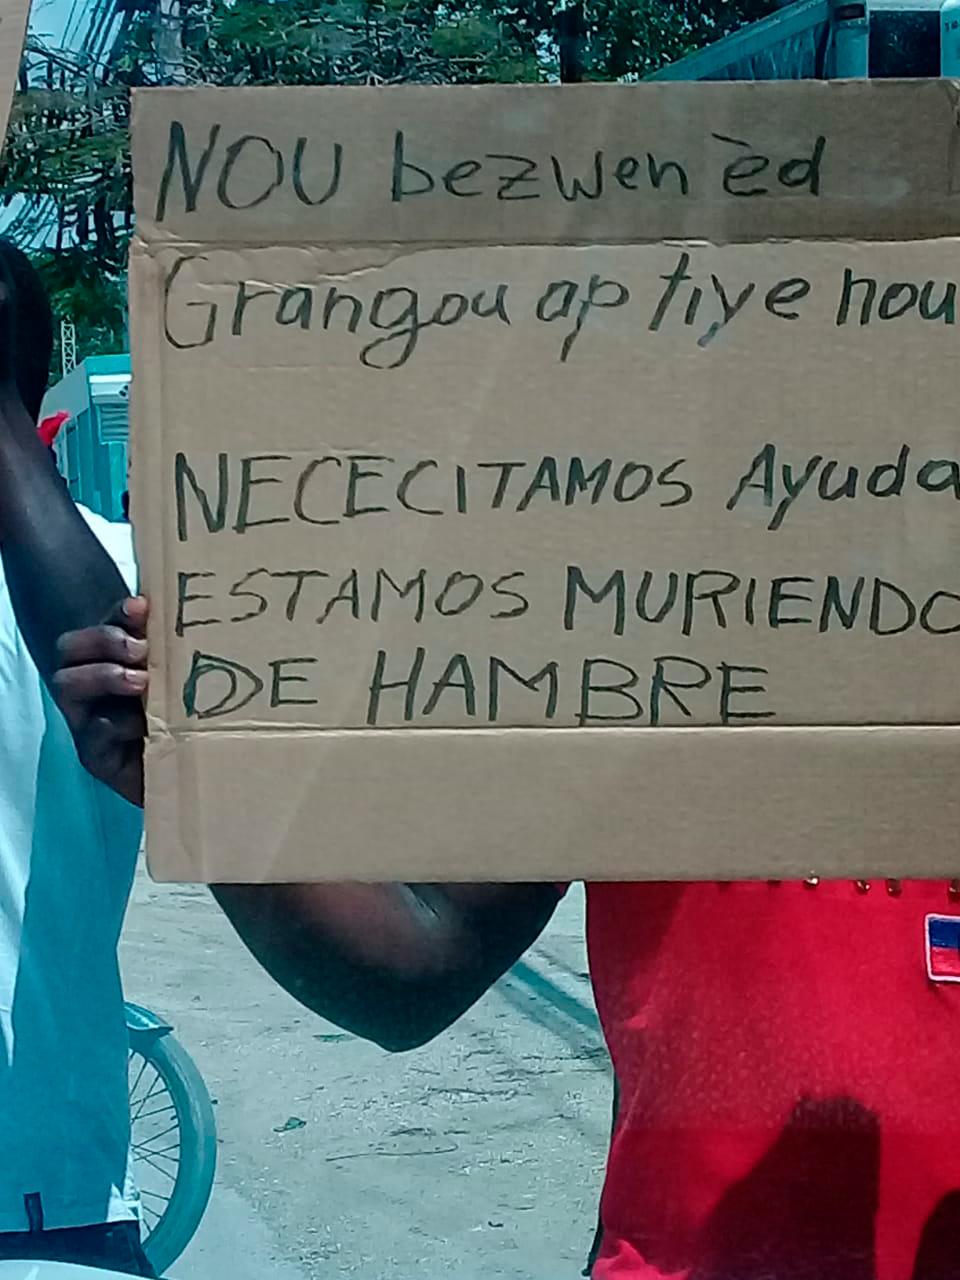 NOU bezwen èd
Grangou ap tiye nou
NECECITAMOS Ayuda
ESTAMOS MURIENDO
DE HAMBRE